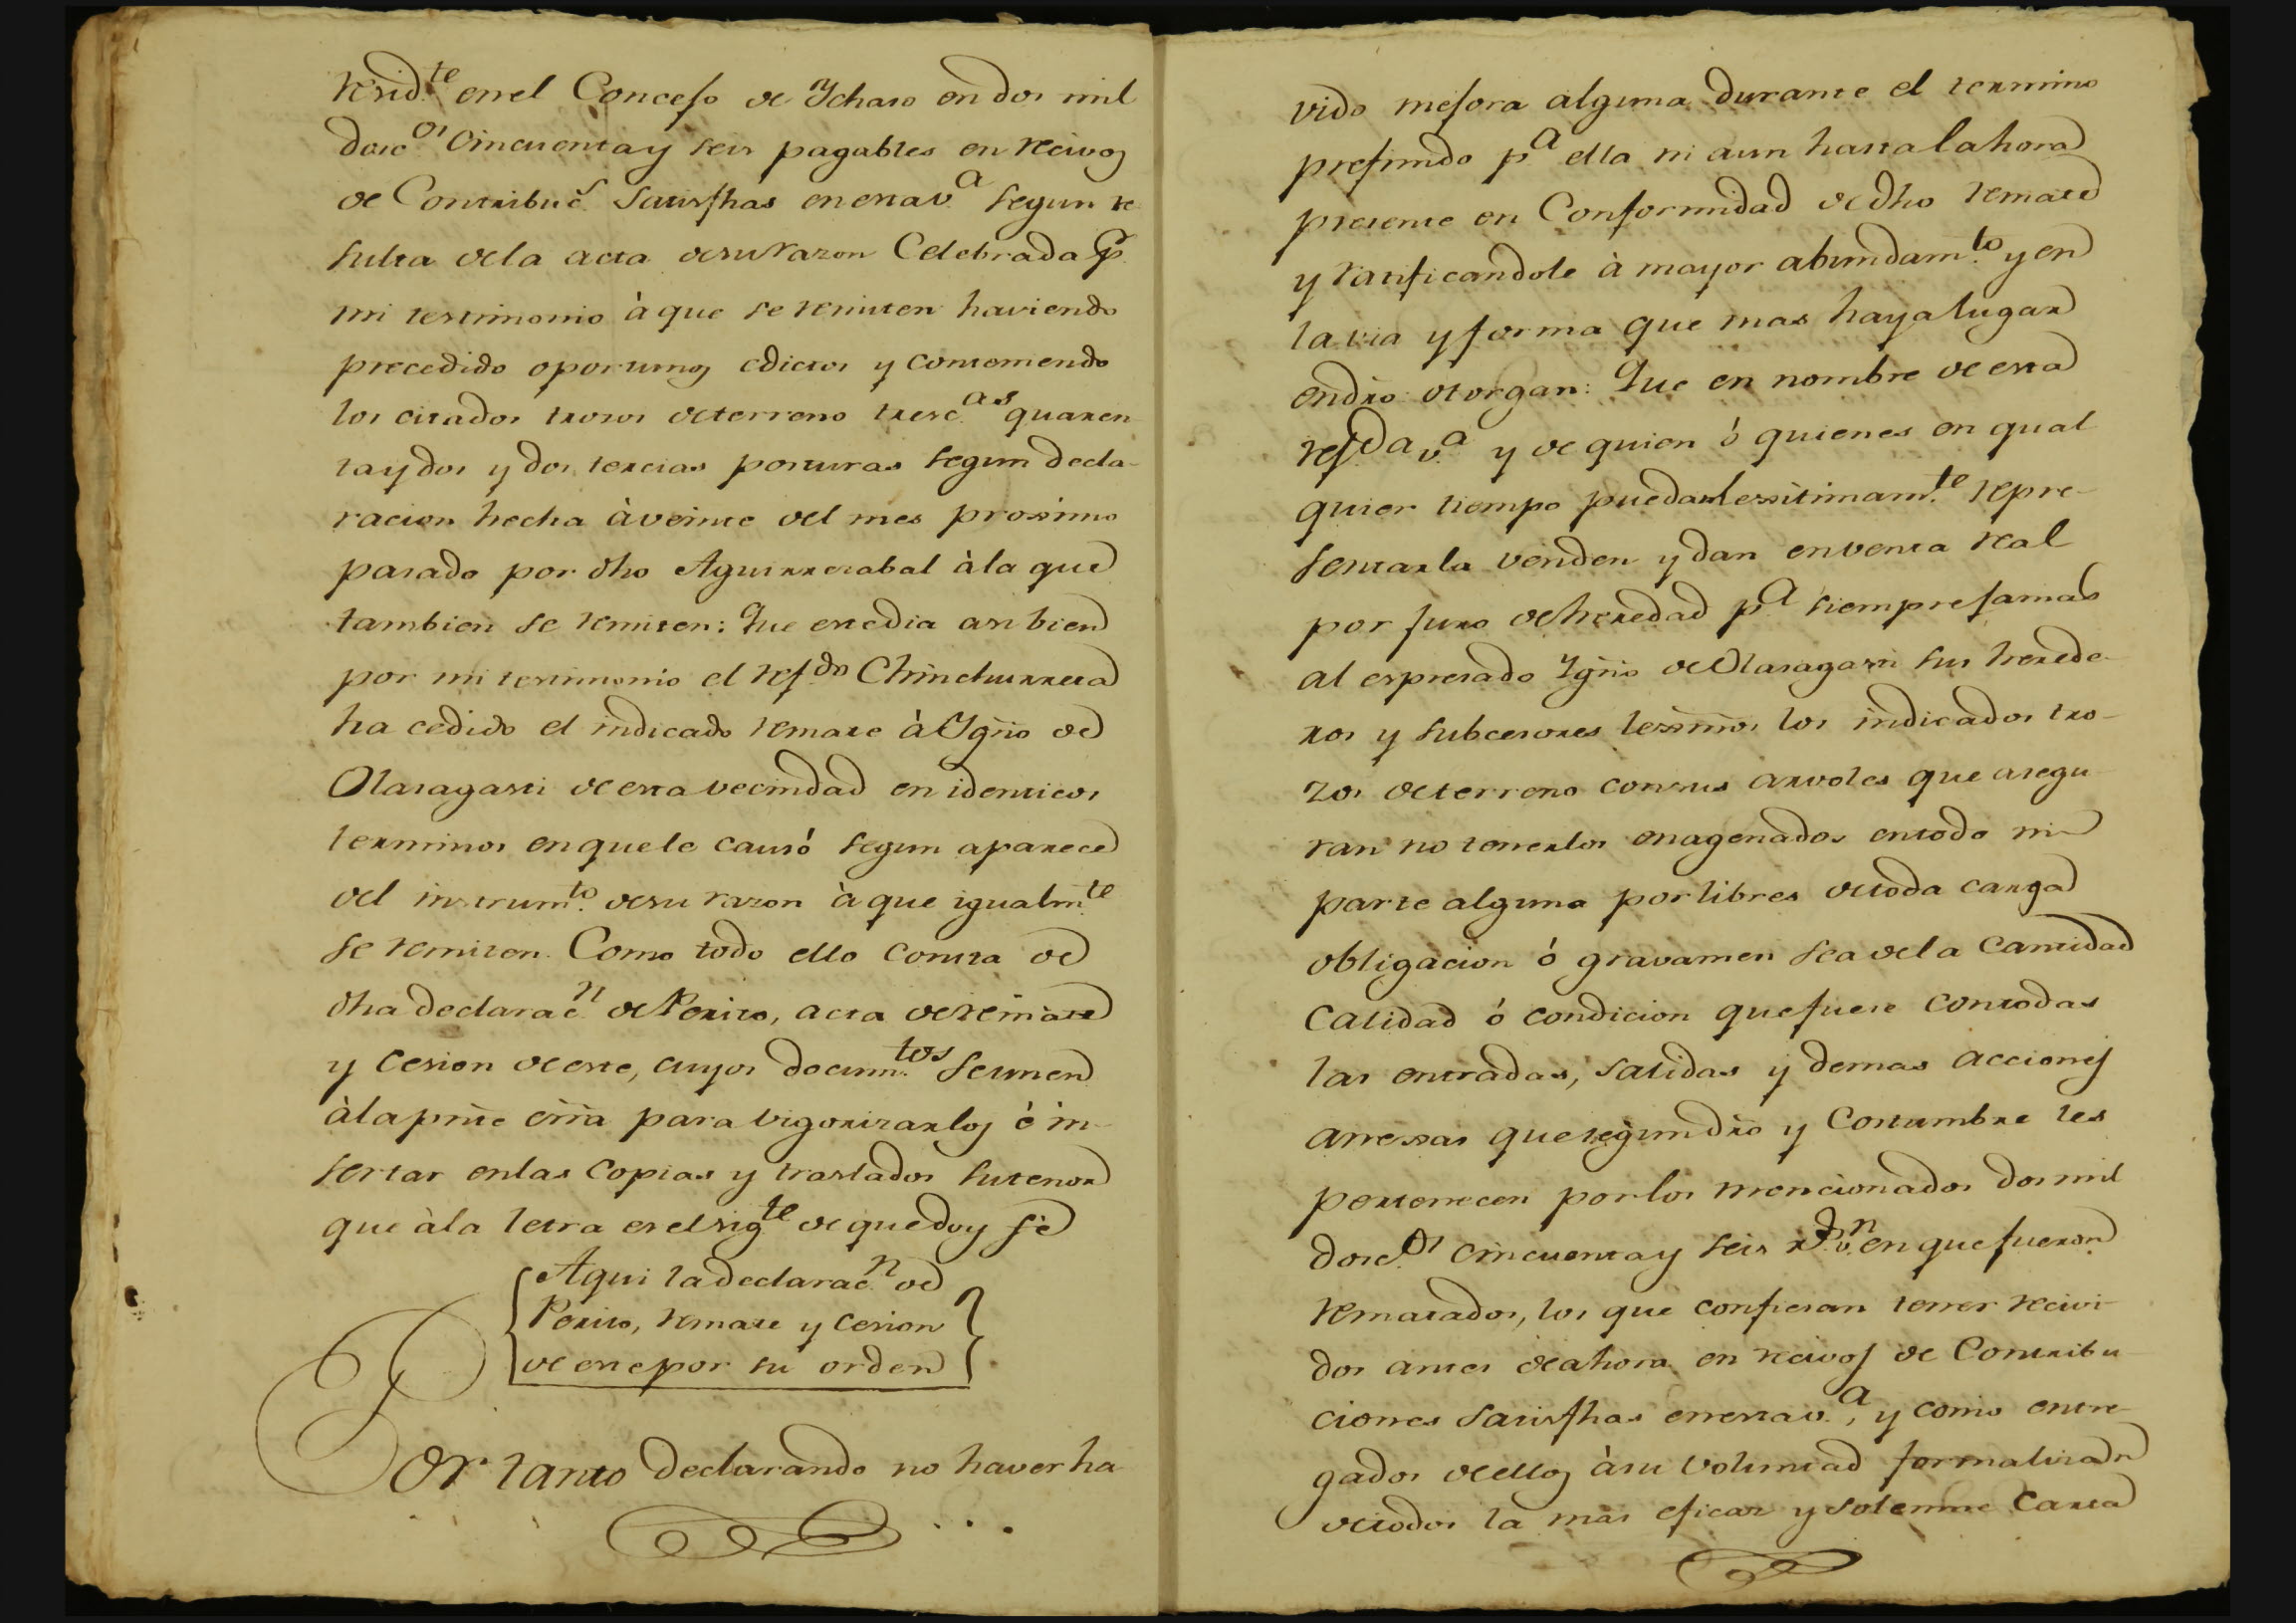 resid.te en el Concejo de Ychaso en dos mil
dosc.os cincuenta y seis pagables en recivos
de Contribuc.s satisfhas en esta v.a segun re
sulta de la acta de su razon Celebrada p.r
mi testimonio à que se remiten haviendo
precedido oportunos edictos y conteniendo
los citados trozos de terreno tresc.as quaren
ta y dos y dos tercias posturas segun decla-
racion hecha à veinte del mes proximo
pasado por dho Aguirrezabal à la que
tambien se remiten: Que este dia asi bien
por mi testimonio el ref.do Chinchurreta
ha cedido el indicado remate à Ygño de
Olasagasti de esta vecindad en identicos
terminos en que le causó segun aparece
del instrum.to de su razon à que igualm.te
se remiten. Como todo ello consta de
dha declarac.n de Perito, acta de remate
y Cesion de este, cuyos docum.tos se unen
à la pñte çrra para vigorizarlos è in-
sertar en las Copias y traslados su tenor
que à la letra es el sig.te de que doy fè
Aqui la declarac.n de
Perito, remate y Cesion
de este por su orden
Por tanto declarando no haver ha
vido mejora alguna durante el termino
prefinido p.a ella ni aun hasta la hora
presente en Conformidad de dho remate
y ratificandole à mayor abundam.to y en
la via y forma que mas haya lugar
en dro otorgan: Que en nombre de esta
ref.da v.a y de quien ó quienes en qual
quier tiempo puedan lexitimam.te repre-
sentarla venden y dan en venta real
por juro de heredad p.a siempre jamas
al expresado Ygño de Olasagasti sus herede-
ros y subcesores lexmos los indicados tro-
zos de terreno con sus arvoles que asegu-
ran no tenerlos enagenados en todo ni
parte alguna por libres de toda carga
obligacion ó gravamen sea de la cantidad
calidad ó condicion que fuere con todas
las entradas, salidas y demas acciones
anexas que segun dro y Costumbre les
pertenecen por los mencionados dos mil
dosc.os cincuenta y seis r.s v.n en que fueron
rematados, los que confiesan tener recivi-
dos antes de ahora en recivos de Contribu-
ciones satisfhas en esta v.a, y como entre-
gados de ellos à su voluntad formalizan
de todos la mas eficaz y solemne Carta